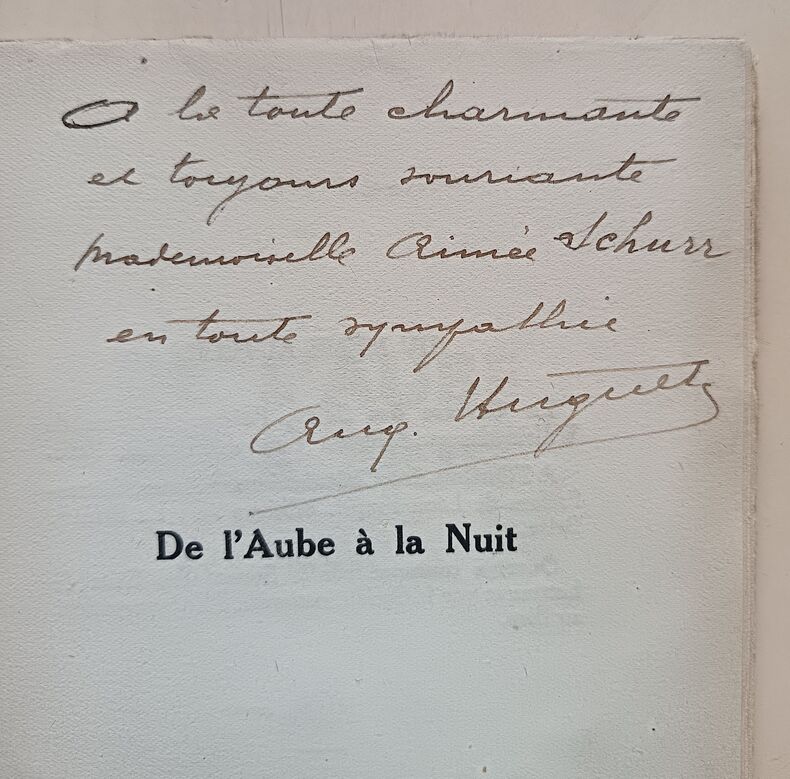 A la toute charmante
et toujours souriante
Mademoiselle Aimée Schurr
en toute sympathie
Aug. Huguet
De l'Aube à la Nuit